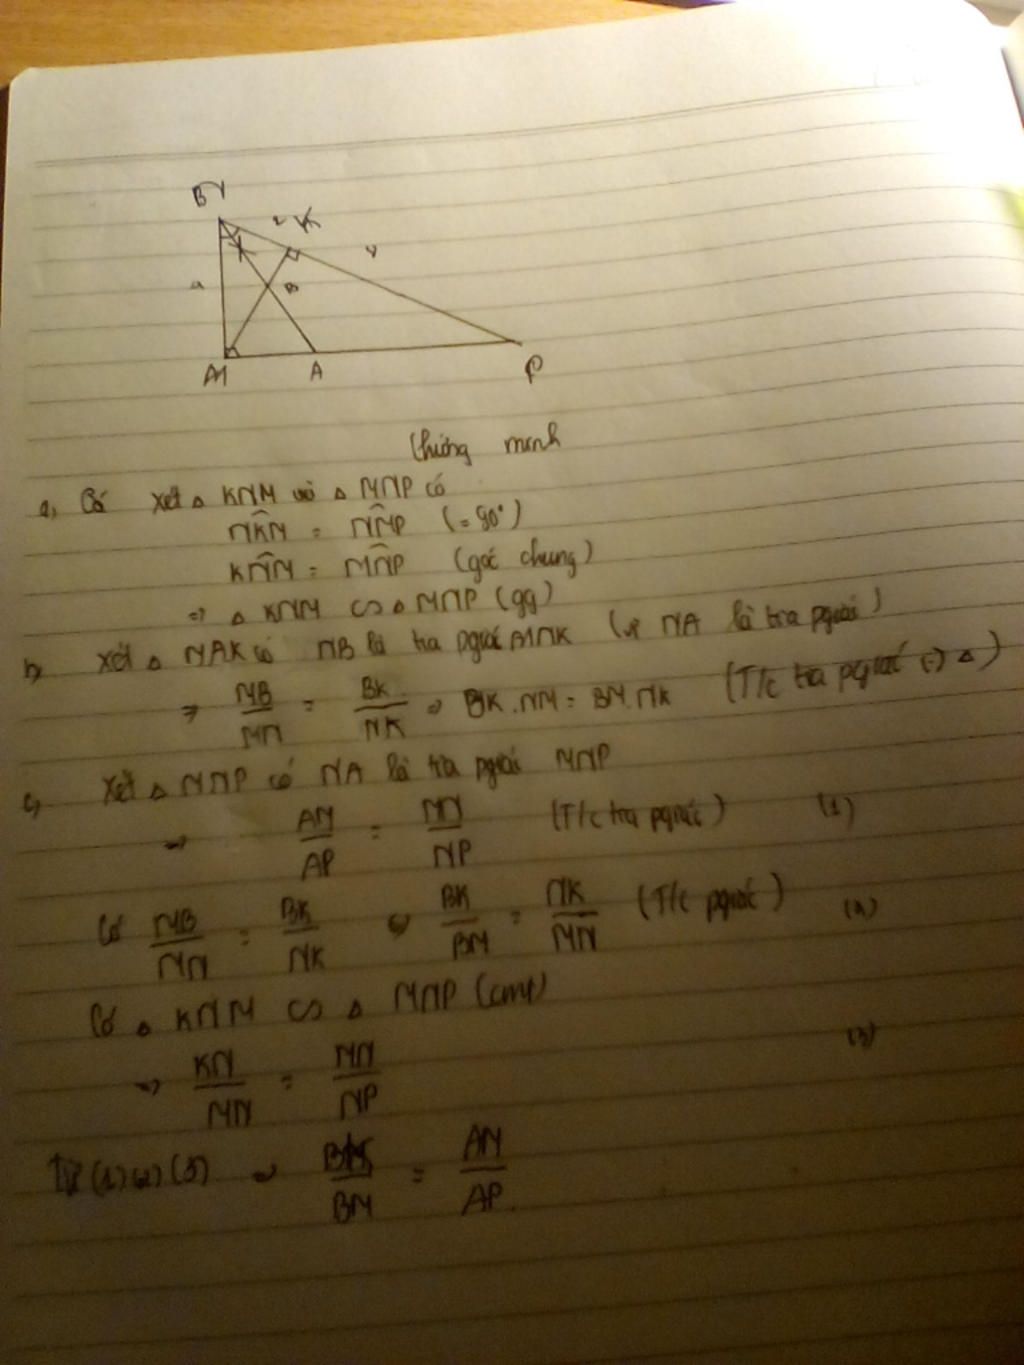 N
K
B
M A P
Chứng minh
a, Có Xét △ KNM và △ MNP có
NK̂M = NM̂P (=90°)
KN̂M = MN̂P (góc chung)
=> △ KNM ∽ △ MNP (gg)
b, Xét △ NAK có NB là tia pgiác MNK (vì NA là tia pgiác)
=> MB/MN = BK/NK => BK.NM = BM.NK (T/c tia pgiác (-) △)
c, Xét △ MNP có NA là tia pgiác MNP
=> AM/AP = MN/NP (T/c tia pgiác) (1)
Có MB/MN = BK/NK => BK/BM = NK/MN (T/c pgiác) (2)
Có △ KNM ∽ △ MNP (cmt)
=> KN/MN = MN/NP (3)
Từ (1)(2)(3) => BK/BM = AM/AP.